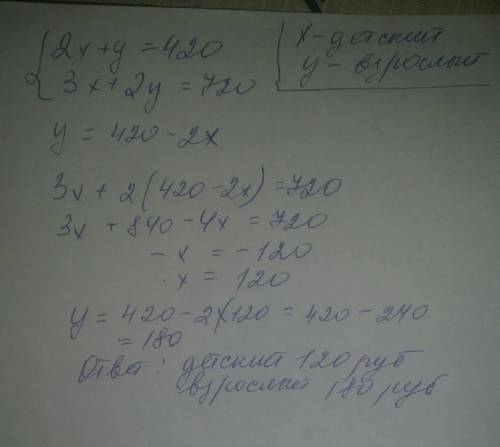 2x+y=420
3x+2y=720
x-детский
y-взрослый
y=420-2x
3x+2(420-2x)=720
3x+840-4x=720
-x=-120
x=120
y=420-2×120=420-240
=180
Ответ: детский 120 руб
взрослый 180 руб